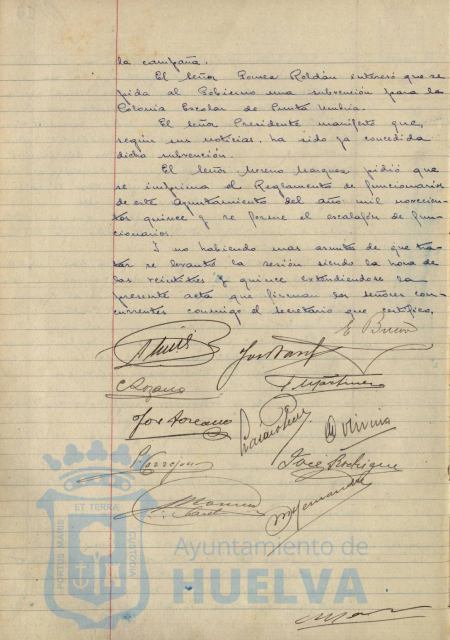 la campaña.
El Señor Ponce Roldán interesó que se
pida al Gobierno una subvención para la
Colonia Escolar de Punta Umbría.
El Señor Presidente manifestó que,
según sus noticias, ha sido ya concedida
dicha subvención.
El Señor Moreno Marquez pidió que
se imprima el Reglamento de funcionarios
de este Ayuntamiento del año mil novecien-
tos quince y se forme el escalafón de fun-
cionarios.
Y no habiendo mas asuntos de que tra-
tar se levantó la sesión siendo la hora de
las veintitres y quince extendiendose la
presente acta que firman los señores con-
currentes conmigo el secretario que certifico.
José Rodriguez
M Hernandez
PORTUS MARIS
ET TERRÆ
CUSTODIA
Ayuntamiento de
HUELVA